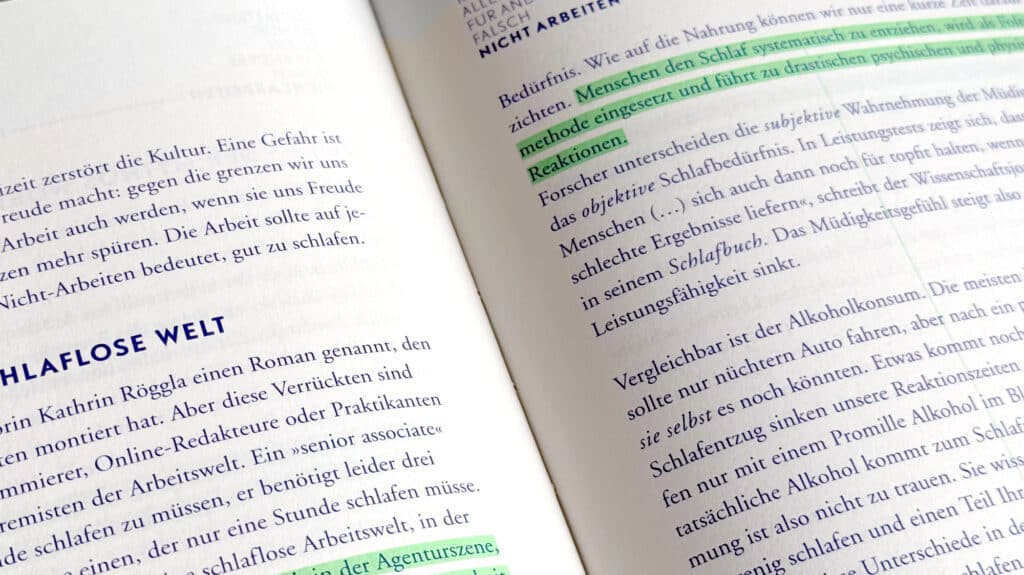 zeit zerstört die Kultur. Eine Gefahr ist
reude macht: gegen die grenzen wir uns
Arbeit auch werden, wenn sie uns Freude
zen mehr spüren. Die Arbeit sollte auf je-
Nicht-Arbeiten bedeutet, gut zu schlafen.
HLAFLOSE WELT
orin Kathrin Röggla einen Roman genannt, den
ten montiert hat. Aber diese Verrückten sind
mmierer, Online-Redakteure oder Praktikanten
remisten der Arbeitswelt. Ein »senior associate«
de schlafen zu müssen, er benötigt leider drei
e einen, der nur eine Stunde schlafen müsse.
e schlaflose Arbeitswelt, in der
in der Agenturszene,
ALLE
FÜR AND
FALSCH
NICHT ARBEITEN
Bedürfnis. Wie auf die Nahrung können wir nur eine kurze Zeit
zichten. Menschen den Schlaf systematisch zu entziehen, wird als Folt
methode eingesetzt und führt zu drastischen psychischen und physi
Reaktionen.
Forscher unterscheiden die subjektive Wahrnehmung der Müdig
das objektive Schlafbedürfnis. In Leistungstests zeigt sich, dass
Menschen (…) sich auch dann noch für topfit halten, wenn
schlechte Ergebnisse liefern«, schreibt der Wissenschaftsjo
in seinem Schlafbuch. Das Müdigkeitsgefühl steigt also
Leistungsfähigkeit sinkt.
Vergleichbar ist der Alkoholkonsum. Die meisten
sollte nur nüchtern Auto fahren, aber nach ein
sie selbst es noch könnten. Etwas kommt noch
Schlafentzug sinken unsere Reaktionszeiten
fen nur mit einem Promille Alkohol im Bl
tatsächliche Alkohol kommt zum Schlaf
mung ist also nicht zu trauen. Sie wiss
wenig schlafen und einen Teil Ihr
Unterschiede in de